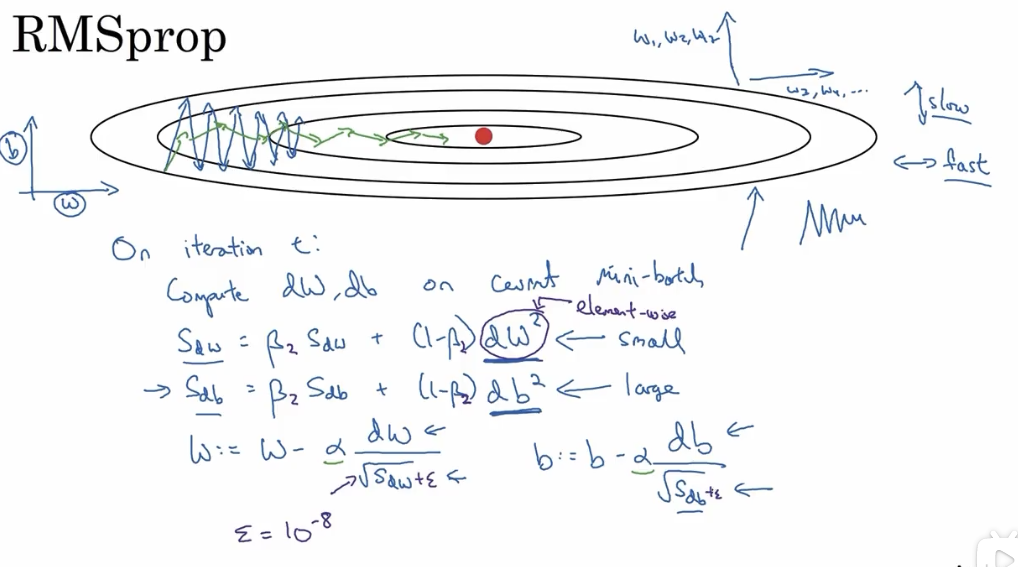 RMSprop
w₁, w₂, w₂
w₃, w₄, ...
slow
fast
b
w
On iteration t:
Compute dW, db on current mini-batch
element-wise
Sdw = β₂ Sdw + (1-β₂) dW² ← small
→ Sdb = β₂ Sdb + (1-β₂) db² ← large
W := W - α dW / √Sdw + ε ←
b := b - α db / √Sdb + ε ←
ε = 10⁻⁸